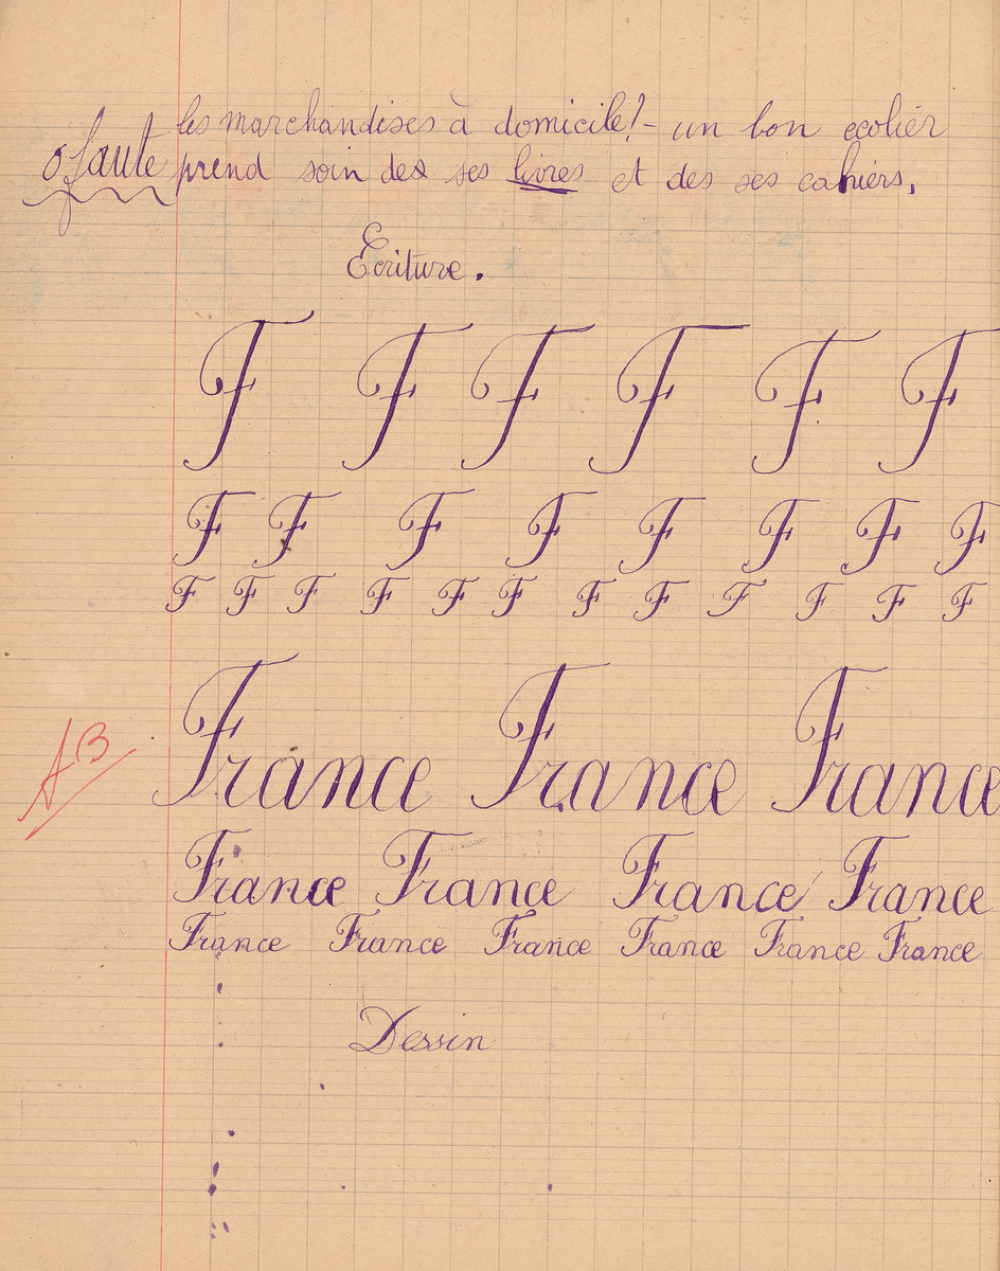 les marchandises à domicile! - un bon ecolier
0 faute prend soin des ses livres et des ses cahiers,
Ecriture.
F F F F F F
F F F F F F F F
F F F F F F F F F F F F
France France France
AB
France France France France
France France France France France France
Dessin